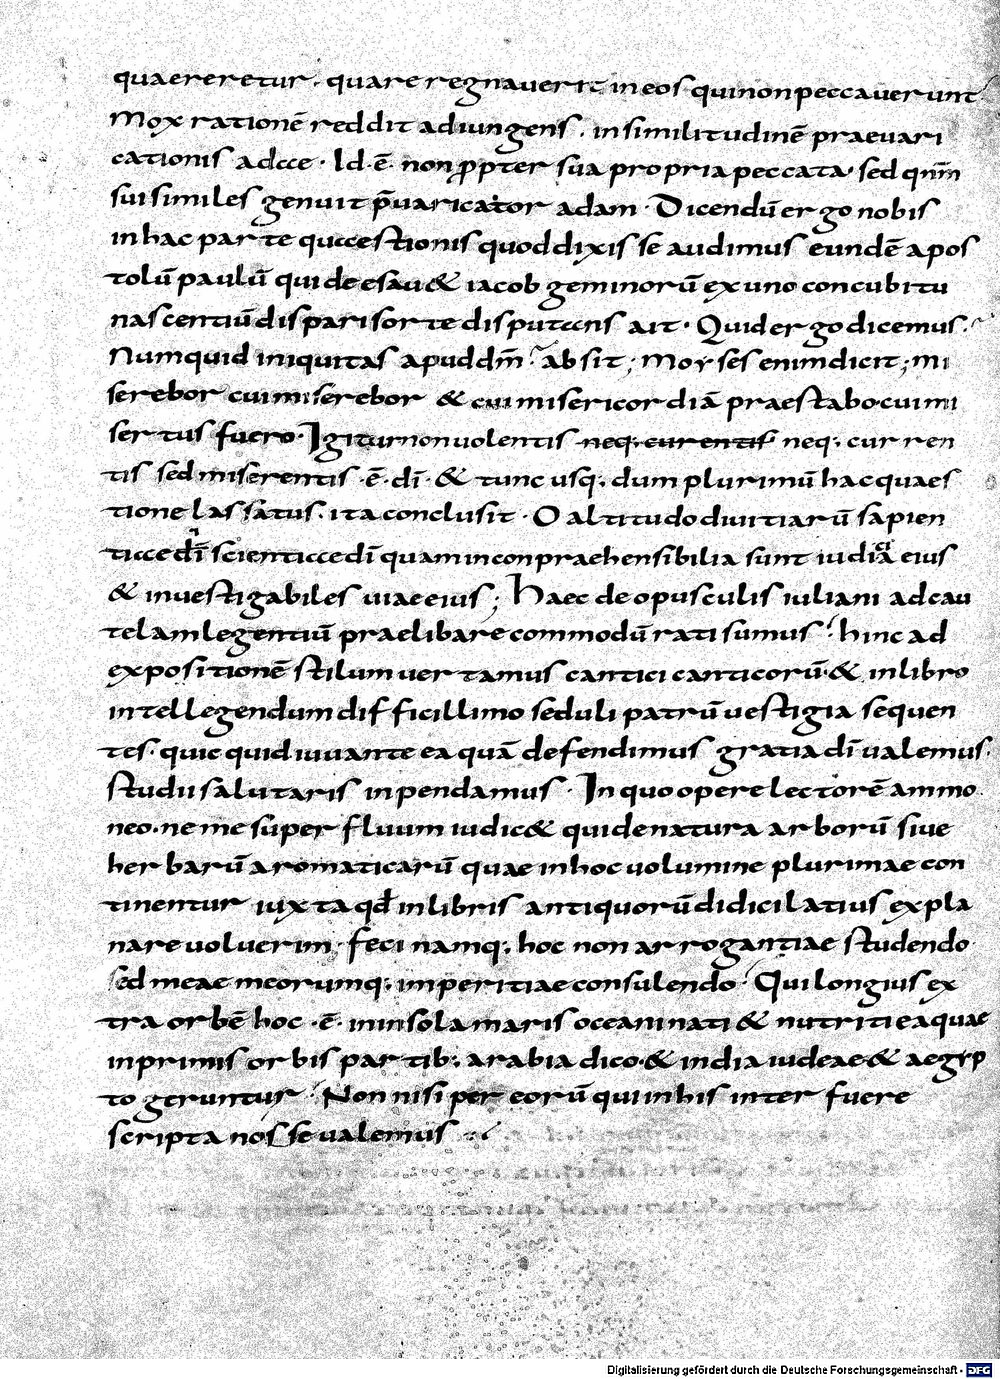 quaereretur. quare regnaverit̄ in eos qui non peccaverunt
Mox rationē reddit adiungens. in similitudinē praevari
cationis adae. Id ē. non ꝓpter sua propria peccata. sed qnm̄
sui similes genuit p̄varicator adam. Dicendū ergo nobis
in hac parte quaestionis quod dixisse audimus eundē apos
tolū paulū qui de esau & iacob geminorū ex uno concubitu
nascentiū dispari sorte disputans ait. Quid ergo dicemus.
Numquid iniquitas apud dm̄? absit; Moyses enim dicit; mi
serebor cui miserebor & cui misericordiā praestabo cui mi
sertus fuero. Igitur non volentis neq; currentis neq; curren
tis sed miserentis ē. dī. & tunc usq; dum plurimū hac quaes
tione lassatus. ita conclusit. O altitudo divitiarū sapien
tiae dī scientiae dī quam inconpraehensibilia sunt iudicia eius
& investigabiles viae eius; Haec de opusculis iuliani ad cau
telam legentiū praelibare commodū rati sumus. hinc ad
expositionē stilum vertamus cantici canticorū. & in libro
intellegendum difficillimo seduli patrū vestigia sequen
tes. quicquid iuvante ea quā defendimus gratia dī valemus.
studii salutaris inpendamus. In quo opere lectorē ammo
neo. ne me superfluum iudic& qui de natura arborū sive
herbarū aromaticarū quae in hoc volumine plurimae con
tinentur iuxta qd̄ in libris antiquorū didici latius expla
nare voluerim. feci namq; hoc non arrogantiae studendo
sed meae meorumq; imperitiae consulendo. Qui longius ex
tra orbē hoc. ē. in insola maris occeani nati & nutriti ea quae
in primis orbis partib; arabia dico. & india iudeae & aegyp
to geruntur. Non nisi per eorū qui in his interfuere
scripta nosse valemus
Digitalisierung gefördert durch die Deutsche Forschungsgemeinschaft - DFG